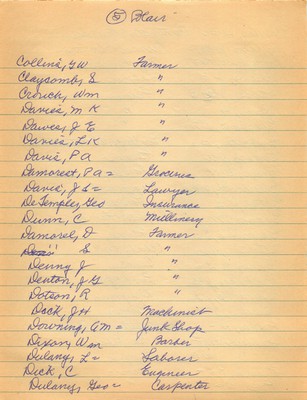 ⑤ Blair
Collins, G W Farmer
Claycomb, S "
Crouch, Wm "
Davies, M K "
Dawes, J E "
Davis, L K "
Davis, P A "
Damorest, P A = Groceries
Davis, J L = Lawyer
DeTemple, Geo Insurance
Dunn, C Millinery
Damorel, D Farmer
S "
Denny J "
Denton, J G "
Dotson, R "
Dock, J H Machinist
Downing, A M = Junk Shop
Dixon, Wm Barber
Dulany, L = Laborer
Dick, C Engineer
Dulany, Geo = Carpenter